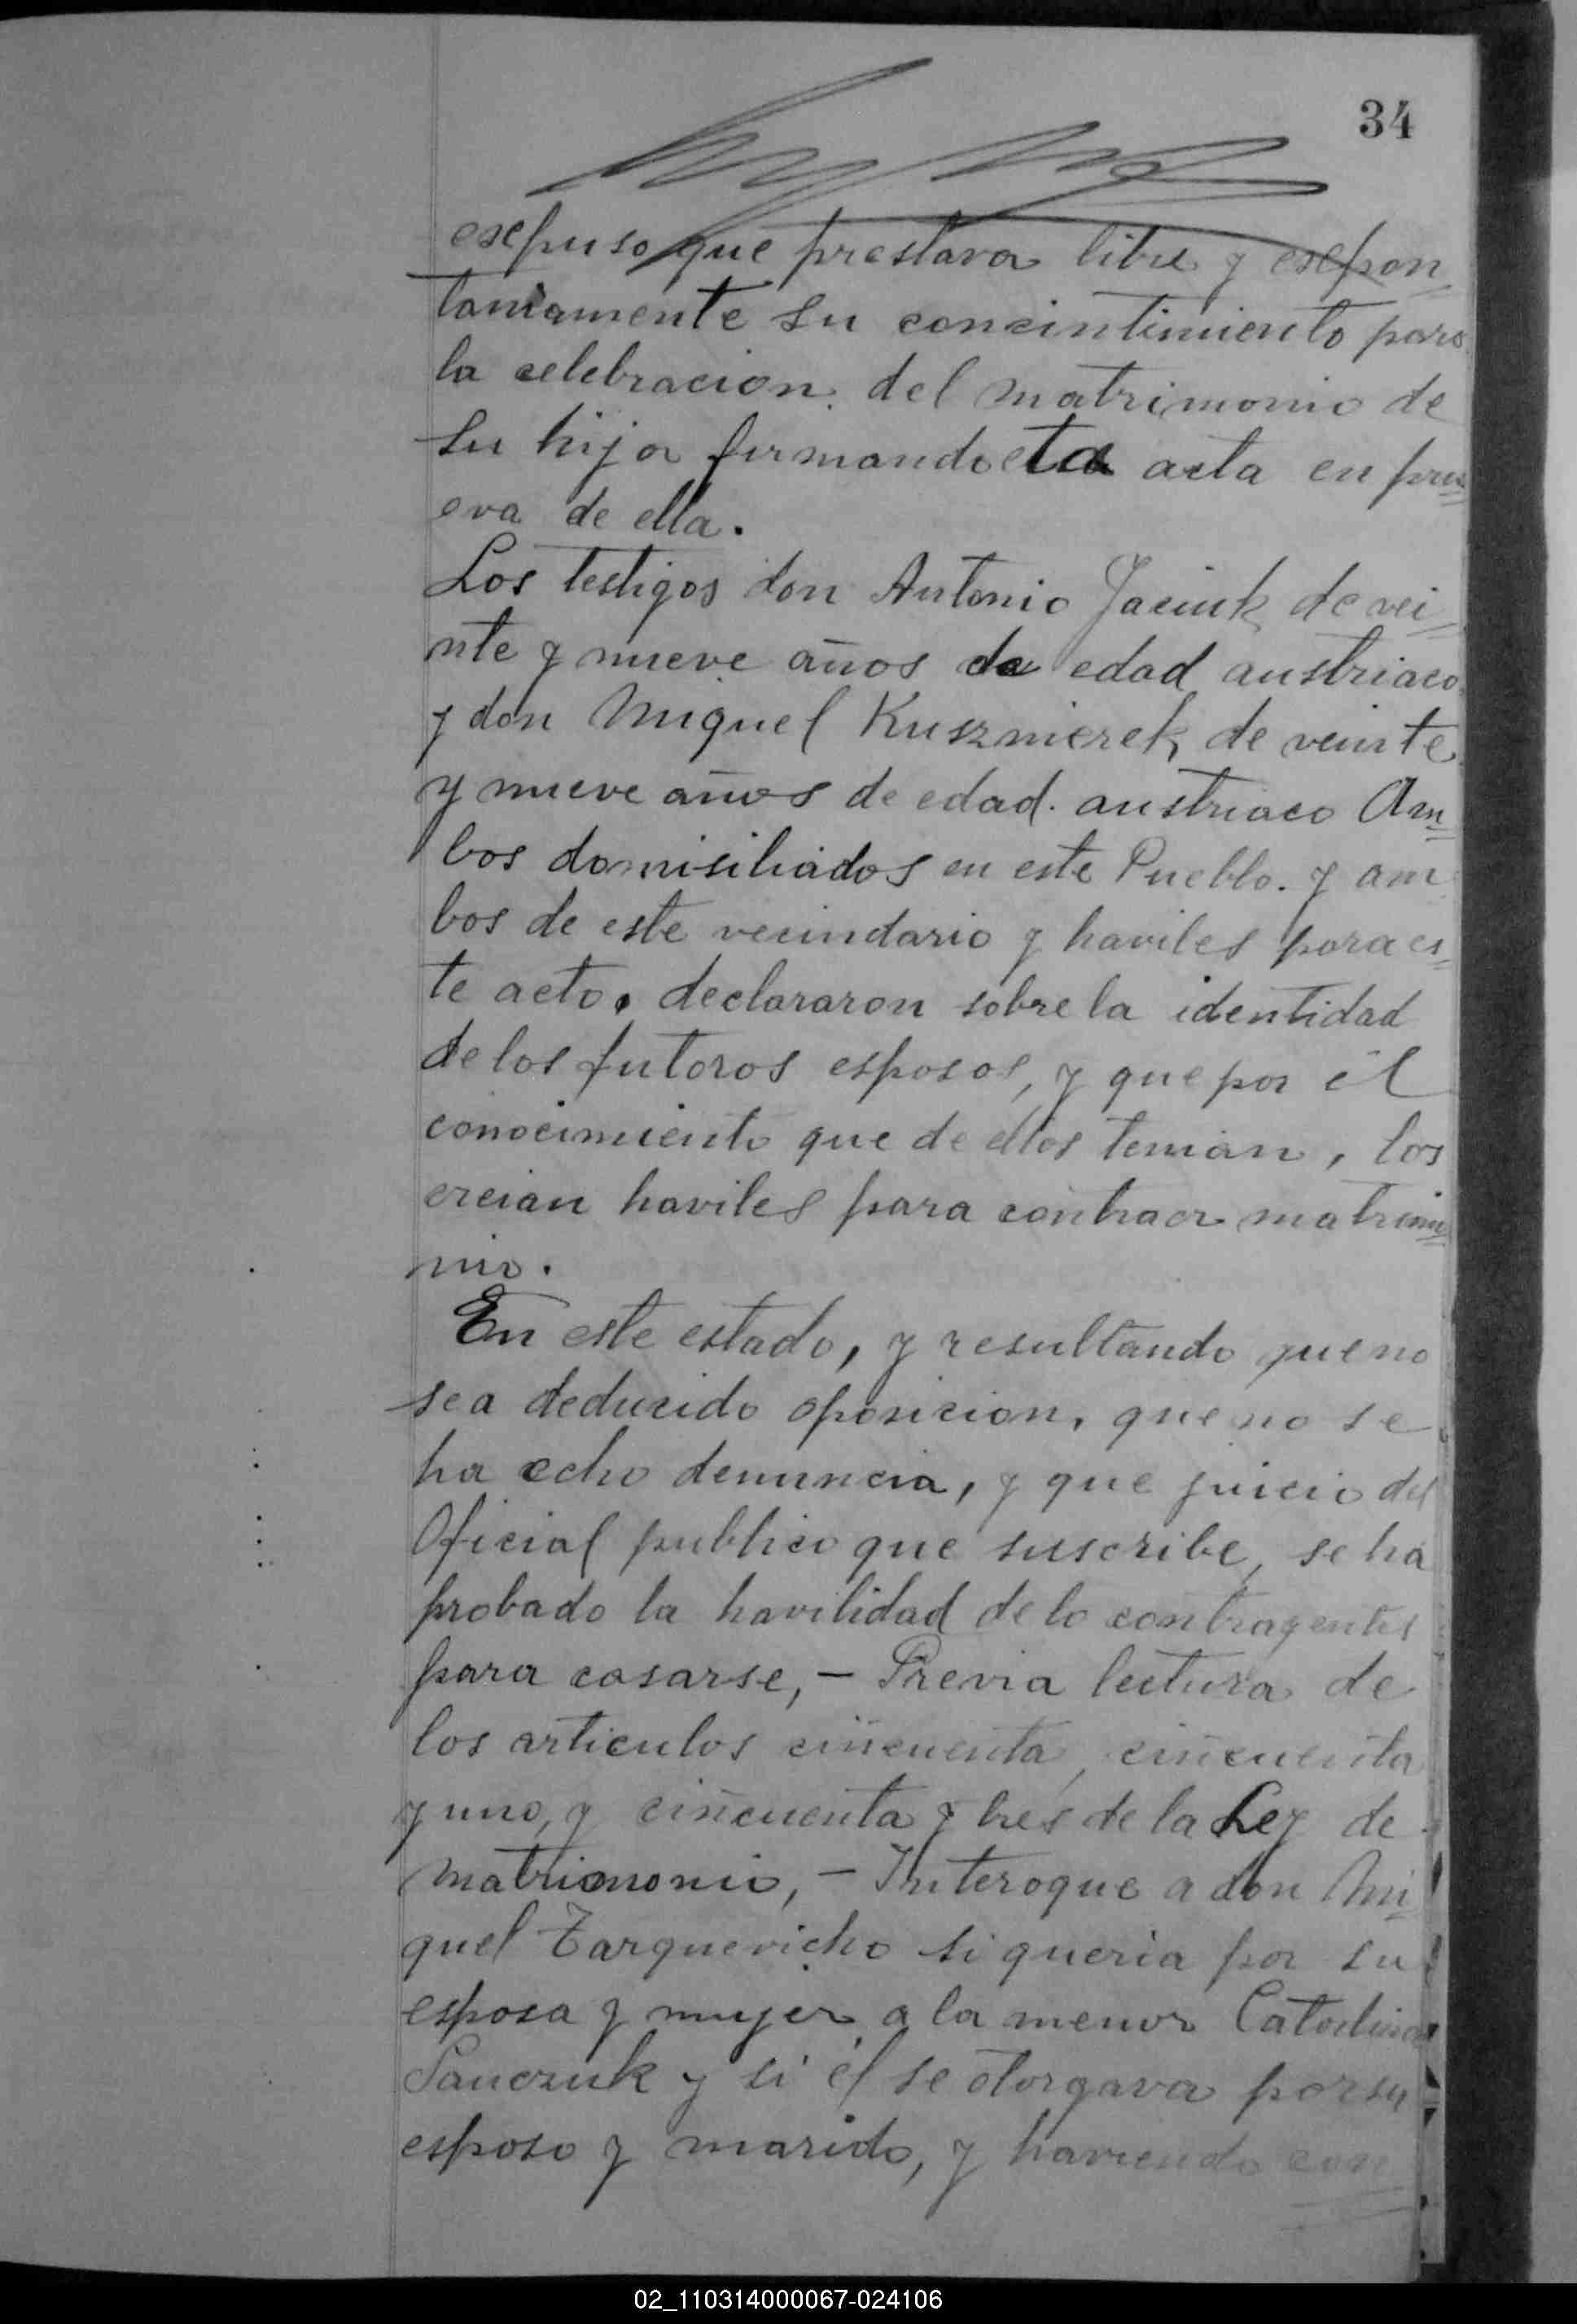 34
exepuso que prestava libre y exepon=
taniamente su concintimiento para
la celebracion del matrimonio de
su hija firmando eta acta en pru=
eva de ella.
Los testigos don Antonio Jaciuk de vei=
nte y nueve años de edad austriaco
y don Miguel Kusznierek de veinte
y nueve años de edad. austriaco Am=
bos domisiliados en este Pueblo. y am
bos de este vecindario y haviles para es=
te acto. declararon sobre la identidad
de los futoros esposos, y que por él
conocimiento que de ellos tenian, los
creian haviles para contraer matrimo=
nio.
En este estado, y resultando que no
sea deducido oposicion, que no se
ha echo denuncia, y que juicio del
Oficial publico que suscribe, se ha
probado la havilidad de lo contragentes
para casarse, – Previa lectura de
los articulos cincuenta, cincuenta
y uno, y cincuenta y tres de la Ley de
matrimonio, – Interoque a don Mi=
guel Tarquevicho si queria por su
esposa y mujer a la menor Catalina
Panczuk y si él se otorgava por su
esposo y marido, y haviendo con
02_110314000067-024106